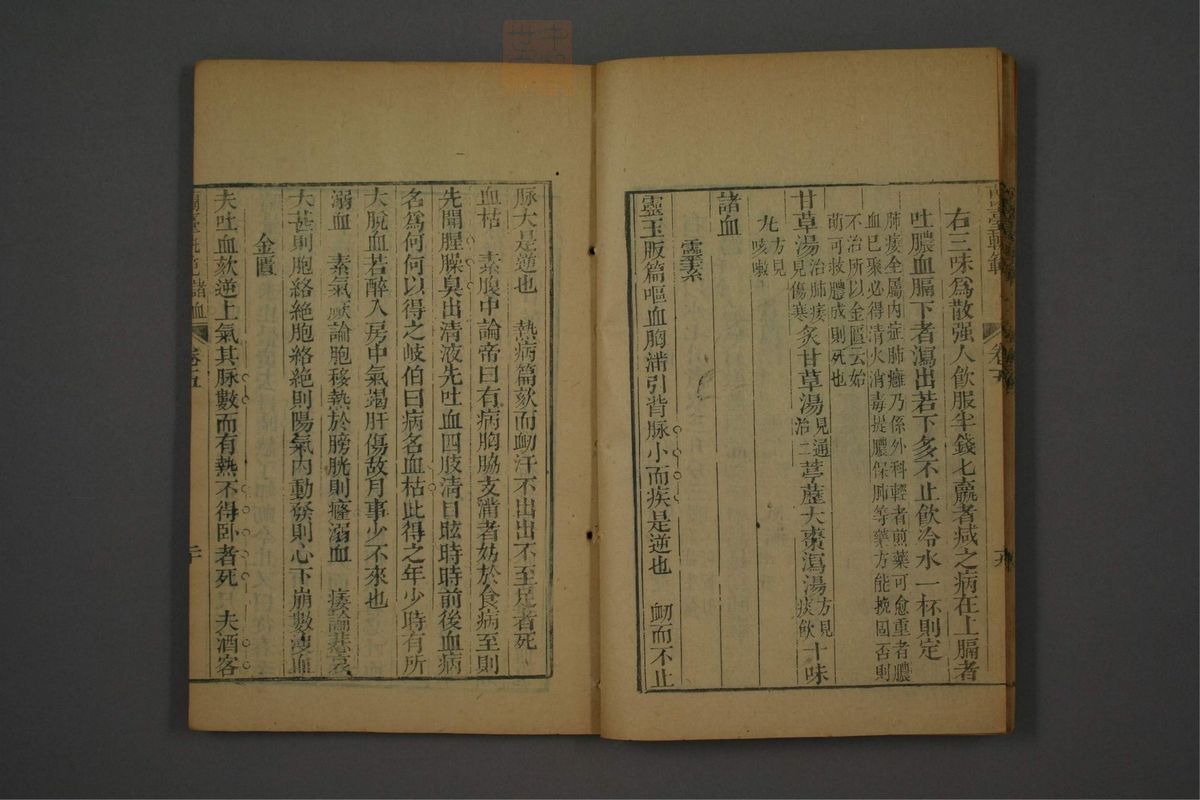 右三味爲散强人飲服半錢七羸者减之病在上膈者
吐膿血膈下者瀉出若下多不止飲冷水一杯則定
肺痿全屬內症肺癰乃係外科輕者煎藥可愈重者膿
血已聚必得清火消毒提膿保肺等藥方能挽囬否則
不治所以金匱云始
萌可救膿成則死也
甘草湯治肺痿見傷寒 炙甘草湯見通治二 葶藶大棗瀉湯方見痰飲 十味
丸方見咳嗽
諸血
靈素
靈玉版篇嘔血胸滿引背脉小而疾是逆也 衂而不止
卷五
脉大是逆也 熱病篇欬而衂汗不出出不至足者死
血枯 素腹中論帝曰有病胸脇支滿者妨於食病至則
先聞腥臊臭出清液先吐血四肢清目眩時時前後血病
名爲何何以得之岐伯曰病名血枯此得之年少時有所
大脫血若醉入房中氣竭肝傷故月事少不來也
溺血 素氣厥論胞移熱於膀胱則癃溺血 痿論悲哀
大甚則胞絡絶胞絡絶則陽氣內動發則心下崩數溲血
金匱
夫吐血欬逆上氣其脉數而有熱不得卧者死 夫酒客
諸血
卷五
二十